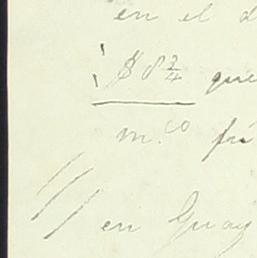 en el d
$ 8 3/4 que
m.co fu
en Guay